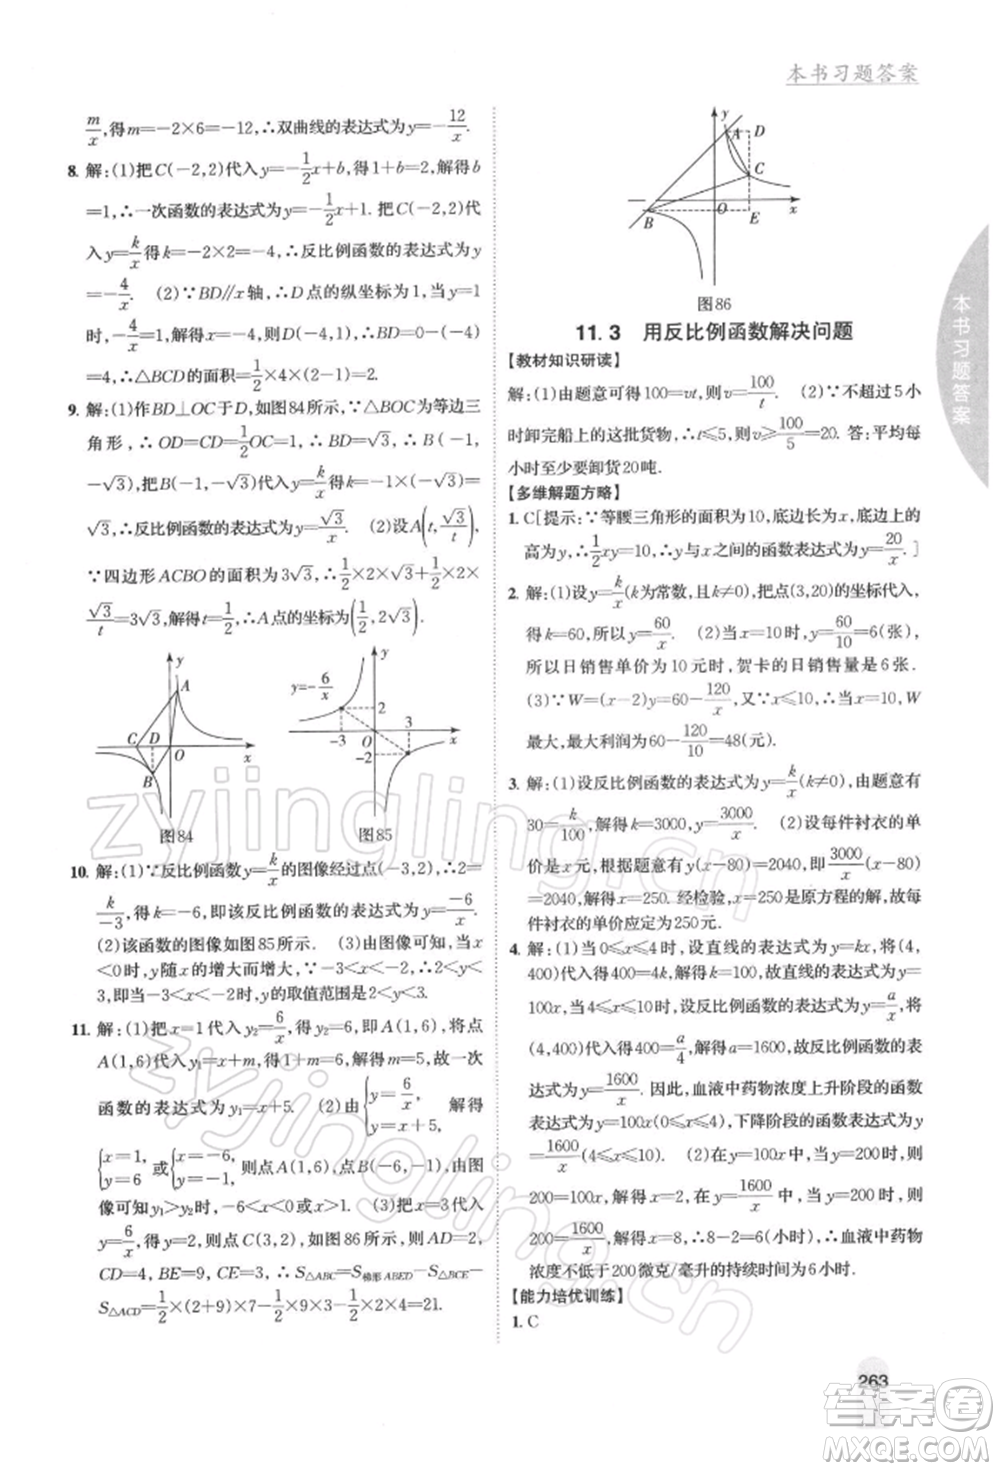 本书习题答案
m/x,得m=-2×6=-12,∴双曲线的表达式为y=-12/x.
8. 解:(1)把C(-2,2)代入y=-1/2x+b,解得b
=1,∴一次函数的表达式为y=-1/2x+1. 把C(-2,2)代
入y=k/x得k=-2×2=-4,∴反比例函数的表达式为y
=-4/x. (2)∵BD//x轴,∴D点的纵坐标为-4.当y=1
时,-4/x=1,∴x=-4,∴D(-4,1),∴BD=0-(-4)
=4,∴△BCD的面积=1/2×4×(2-1)=2.
9. 解:(1)作BD⊥OC于D,如图84所示,∵△BOC为等边三
角形,∴OD=CD=1/2OC=1,∴BD=√3OD=√3,∴B(-1,
-√3).把B(-1,-√3)代入y=k/x得k=-1×(-√3)
=√3,∴反比例函数的表达式为y=√3/x. (2)设A(t,√3/t),
∵四边形ACBO的面积为3√3,∴1/2×2×√3+1/2×2×
√3/t=3√3,解得t=1/2,∴A点的坐标为(1/2,2√3).
y
A
C
D
O
x
B
图84
y=-6/x
y
2
-3
O
3
-2
x
图85
10. 解:(1)∵反比例函数y=k/x的图像经过点(-3,2),∴2=
k/-3,得k=-6,即该反比例函数的表达式为y=-6/x.
(2)该函数的图像如图85所示. (3)由图像可知,当x
<0时,y随x的增大而增大,∴当-3<x<-1时,2<y<
6,即当-3<x<-1时,y的取值范围是2<y<6.
11. 解:(1)把x=1代入y₂=6/x得y₂=6,即A(1,6),将点
A(1,6)代入y₁=x+m,得1+m=6,解得m=5,故一次
函数的表达式为y₁=x+5. (2)由{y=6/x, y=x+5, 解得
{x=1, y=6 或{x=-6, y=-1, 则点A(1,6),点B(-6,-1),由图
像可知y₁>y₂时,x的取值范围是-6<x<0或x>1.
(3)由题意可得点C(3,2),如图86所示,AD=2,
CD=4,BE=9,CE=3,∴S△ABC=S梯形ABED-S△BCE-
S△ACD=1/2×(2+9)×7-1/2×9×3-1/2×2×4=21.
y
A
D
C
B
O
E
x
图86
11.3 用反比例函数解决问题
【教材知识研读】
解:(1)由题意可得100=vt,则v=100/t. (2)∵不超过5小
时卸完船上的这批货物,∴t≤5,则v≥100/5=20. 答:平均每
小时至少要卸货20吨.
【多维解题方略】
1. C[提示:∵等腰三角形的面积为10,底边长为x,底边上的
高为y,∴1/2xy=10,∴y与x之间的函数表达式为y=20/x.]
2. 解:(1)设y=k/x(k为常数,且k≠0),把点(3,20)的坐标代入,
得k=60,所以y=60/x. (2)当x=10时,y=60/10=6(张),
所以日销售单价为10元时,贺卡的日销售量是6张.
(3)∵W=(x-2)y=60-120/x,又∵x≤10,∴当x=10,W
最大,最大利润为60-120/10=48(元).
3. 解:(1)设反比例函数的表达式为y=k/x(k≠0),由题意有
30=k/100,解得k=3000,y=3000/x. (2)设每件衬衣的单
价是x元,根据题意有y(x-80)=2040,即3000/x(x-80)
=2040,解得x=250. 经检验,x=250是原方程的解,故每
件衬衣的单价应定为250元.
4. 解:(1)当0≤x≤4时,设直线的表达式为y=kx,将(4,
400)代入得400=4k,解得k=100,故直线的表达式为y=
100x,当4≤x≤10时,设反比例函数的表达式为y=a/x,将
(4,400)代入得400=a/4,解得a=1600,故反比例函数的表
达式为y=1600/x. 因此,血液中药物浓度上升阶段的函数
表达式为y=100x(0≤x≤4),下降阶段的函数表达式为y
=1600/x(4≤x≤10). (2)当y=200时,y=100x,得
200=100x,解得x=2. 当y=200时,y=1600/x,得
200=1600/x,解得x=8. ∴8-2=6(小时),∴血液中药物
浓度不低于200微克/毫升的持续时间为6小时.
【能力培优训练】
1. C
本书习题答案
263
zyjingling.cn
zyjingling.cn
答案圈
MXQE.COM